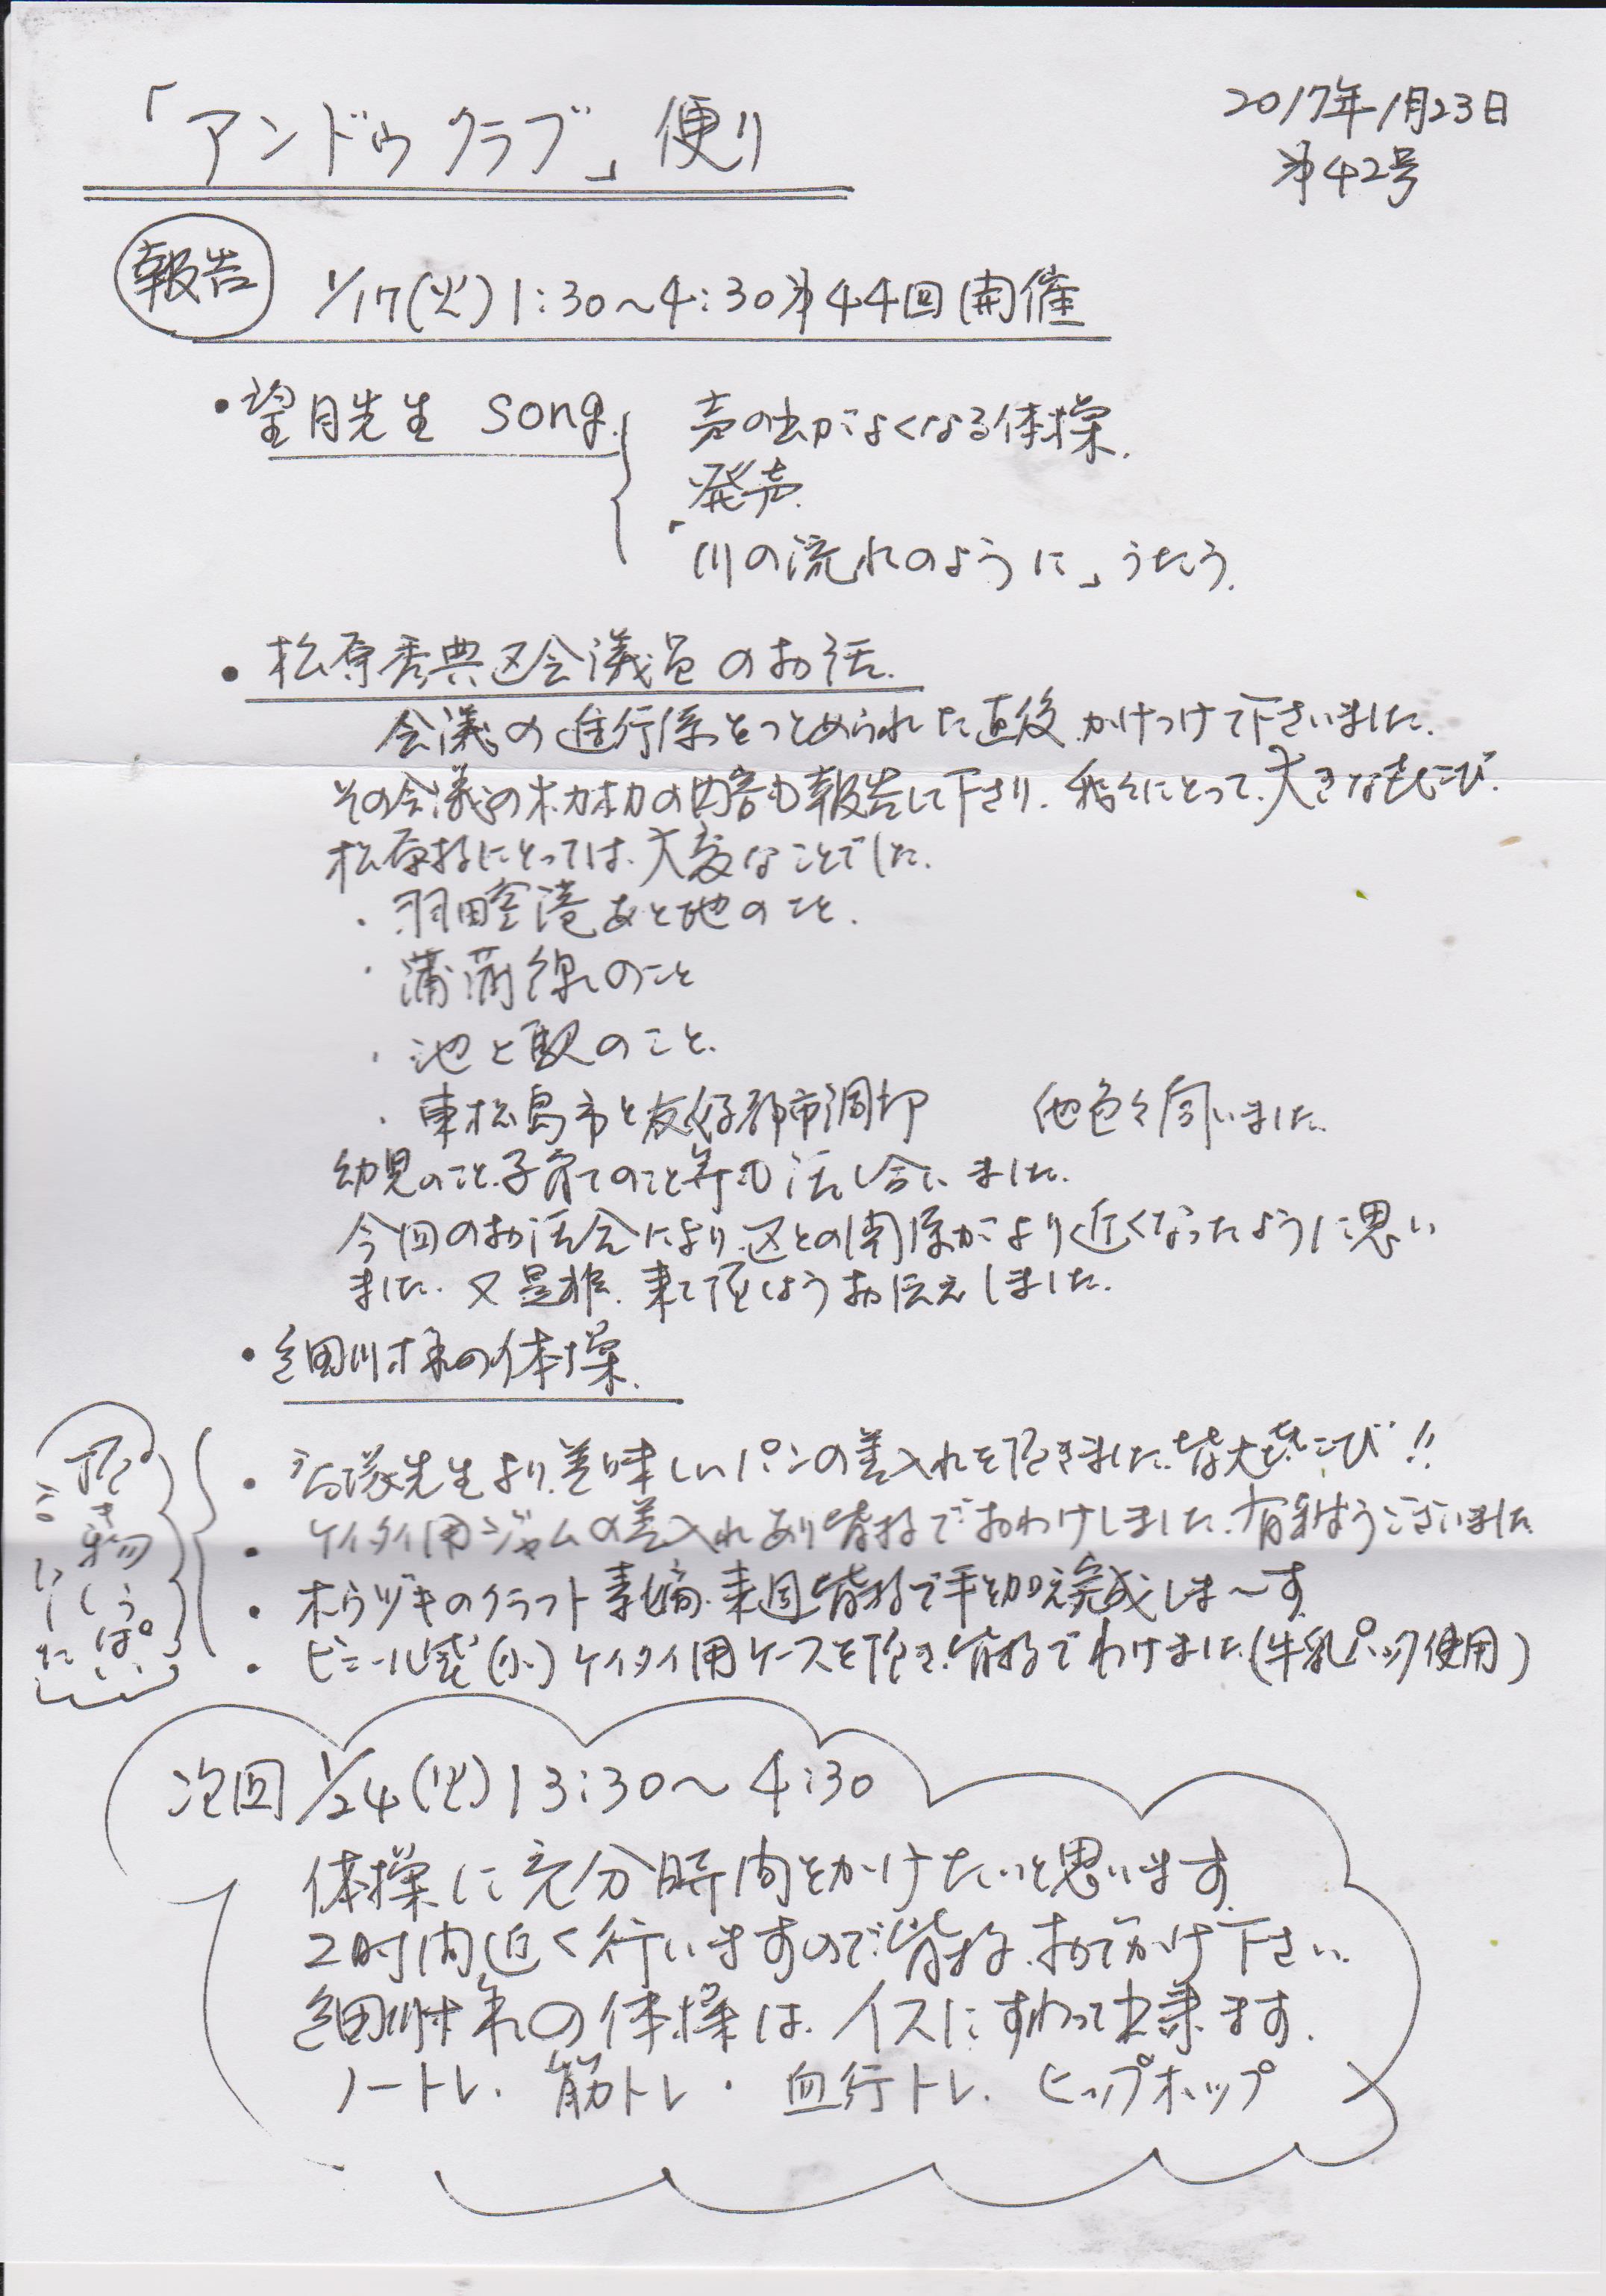 「アンドゥクラブ」便り
2017年1月23日
第42号
報告
1/17(火)1:30〜4:30第44回開催
・望月先生 song.
声の出がよくなる体操.
発声.
「川の流れのように」うたう.
・松原秀典区会議員のお話.
会議の進行係をつとめられた直後かけつけて下さいました.
その会議のホカホカの内容も報告して下さり.我々にとって.大きな喜こび.
松原様にとっては.大変なことでした.
・羽田空港あと地のこと.
・蒲蒲線のこと
・池と駅のこと.
・東松島市と友好都市調印 他色々伺いました.
幼児のこと.子育てのこと等も話し合いました.
今回のお話会により.区との関係がより近くなったように思い
ました.又是非.来て頂くようお伝えしました.
・細川様の体操.
頂き物
いっぱい
でした
・先生より.美味しいパンの差入れを頂きました.皆大喜こび!!
・ケイタイ用ジャムの差入れあり皆様でおわけしました.有難うございました
・ホウヅキのクラフト素.来週皆様で手を加え完成しま〜す
・ビニール袋(小)ケイタイ用ケースを頂き.皆様でわけました(牛乳パック使用)
次回1/24(火)13:30〜4:30
体操に充分時間をかけたいと思います.
2时間近く行いますので.皆様.おでかけ下さい.
細川様の体操は.イスにすわって出来ます.
ノートレ.筋トレ・血行トレ.ヒップホップ